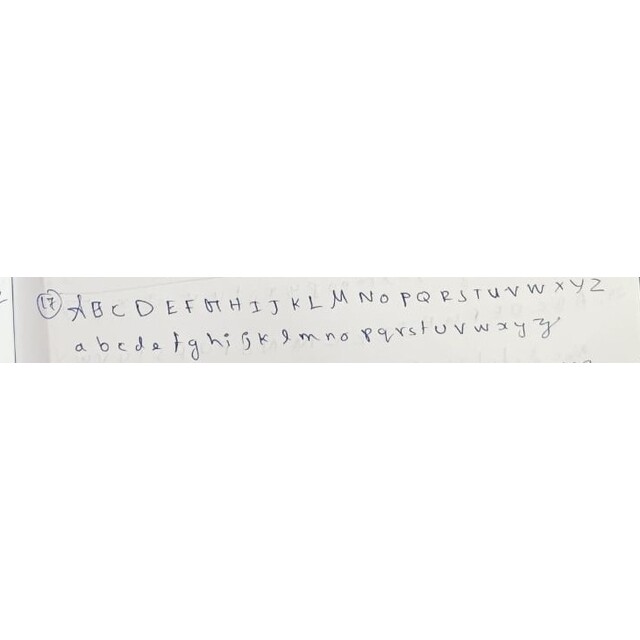 17 A B C D E F G H I J K L M N O P Q R S T U V W X Y Z
a b c d e f g h i j k l m n o p q r s t u v w x y z